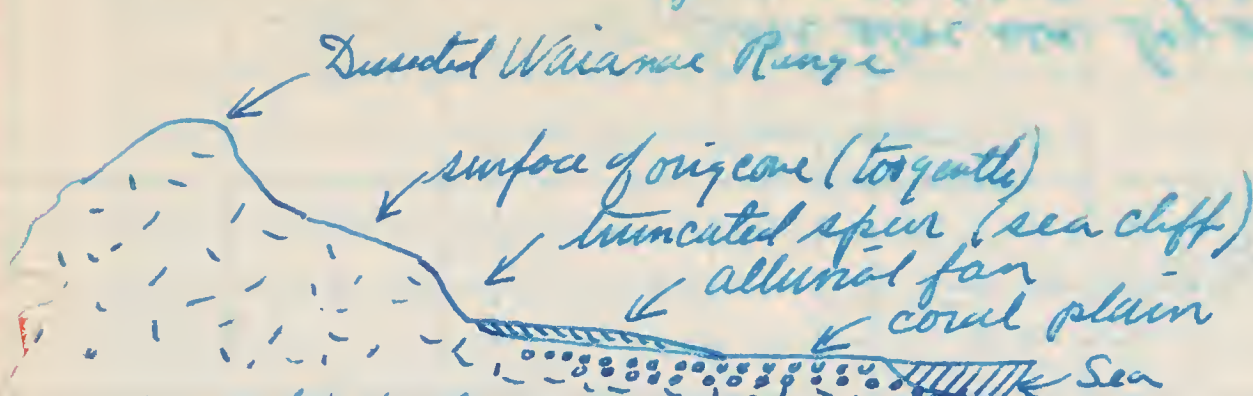 Dissected Waianae Range
surface of orig cone (too gentle)
truncated spur (sea cliff)
alluvial fan
coral plain
Sea